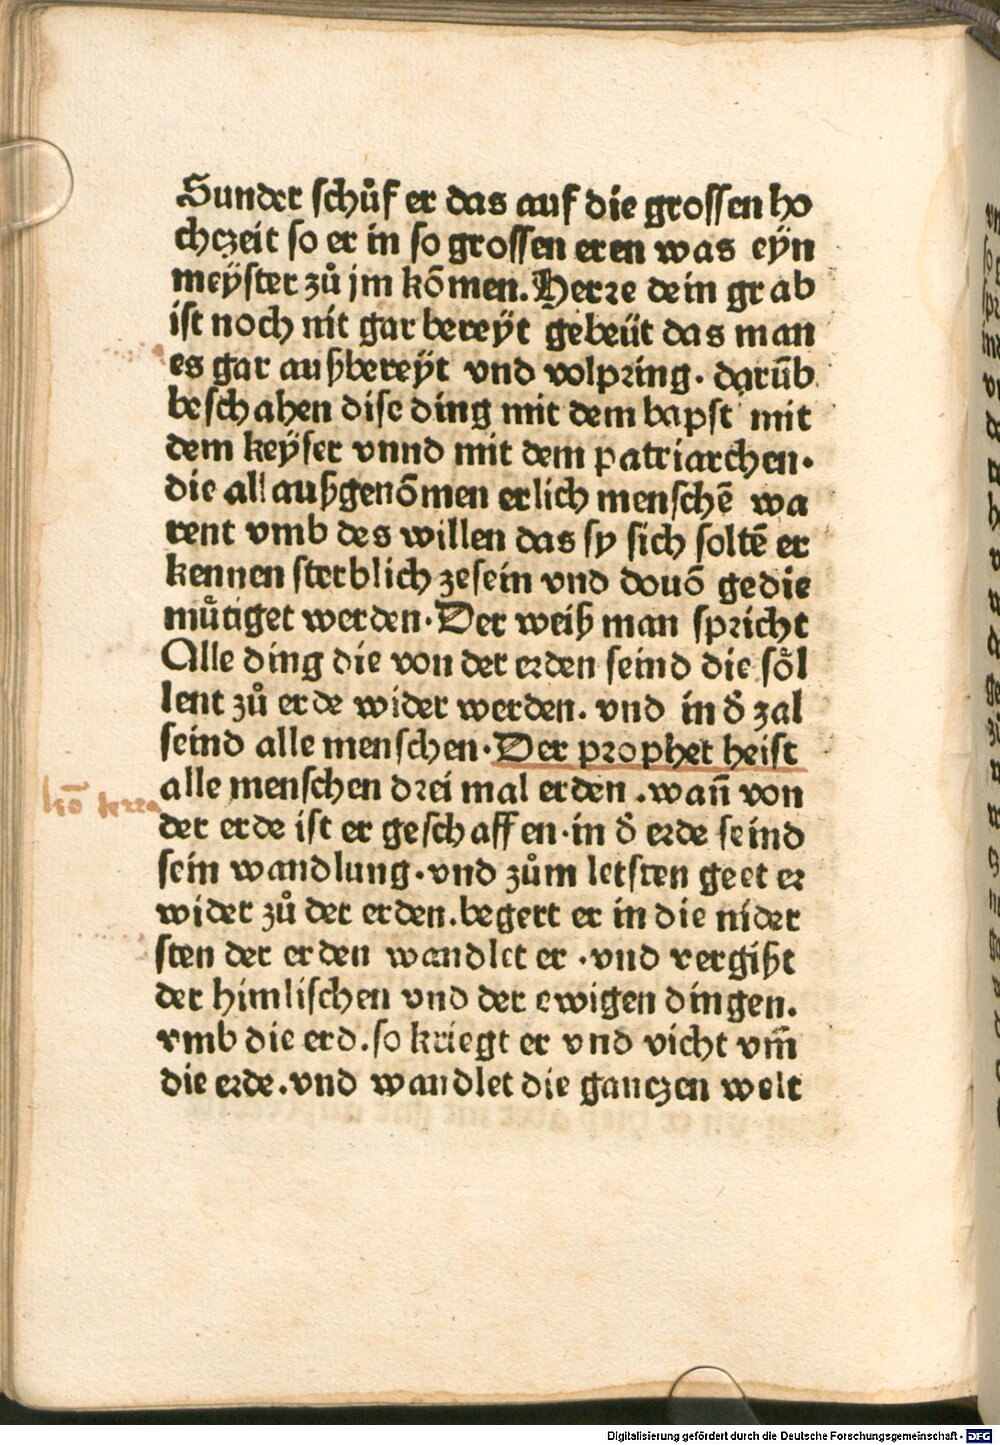 Sunder schůf er das auf die grossen ho
chczeit so er in so grossen eren was eÿn
meÿster zů jm kõmen. Herre dein grab
ist noch nit gar bereÿt gebeüt das man
es gar außbereÿt vnd volpring· darũb
beschahen dise ding mit dem bapst mit
dem keÿser vnnd mit dem patriarchen·
die all außgenõmen erlich menschẽ wa
rent vmb des willen das sy sich soltẽ er
kennen sterblich zesein vnd douõ gedie
můtiget werden· Der weiß man spricht
Alle ding die von der erden seind die soͤl
lent zů erde wider werden. vnd in d̉ zal
seind alle menschen· Der prophet heist
alle menschen drei mal erden .wañ von
der erde ist er geschaffen·in d̉ erde seind
sein wandlung·vnd zům letsten geet er
wider zů der erden.begert er in die nider
sten der erden wandlet er ·vnd vergißt
der himlischen vnd der ewigen dingen.
vmb die erd.so kriegt er vnd vicht vm̃
die erde.vnd wandlet die ganczen welt
terra
Digitalisierung gefördert durch die Deutsche Forschungsgemeinschaft - DFG